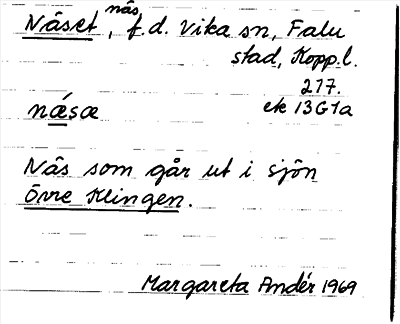 Näset, näs, f.d. Vika sn, Falu
stad, Kopp.l.
217.
næ̂sæ ek 13G1a
Näs som går ut i sjön
Övre Klingen.
Margareta Andér 1969